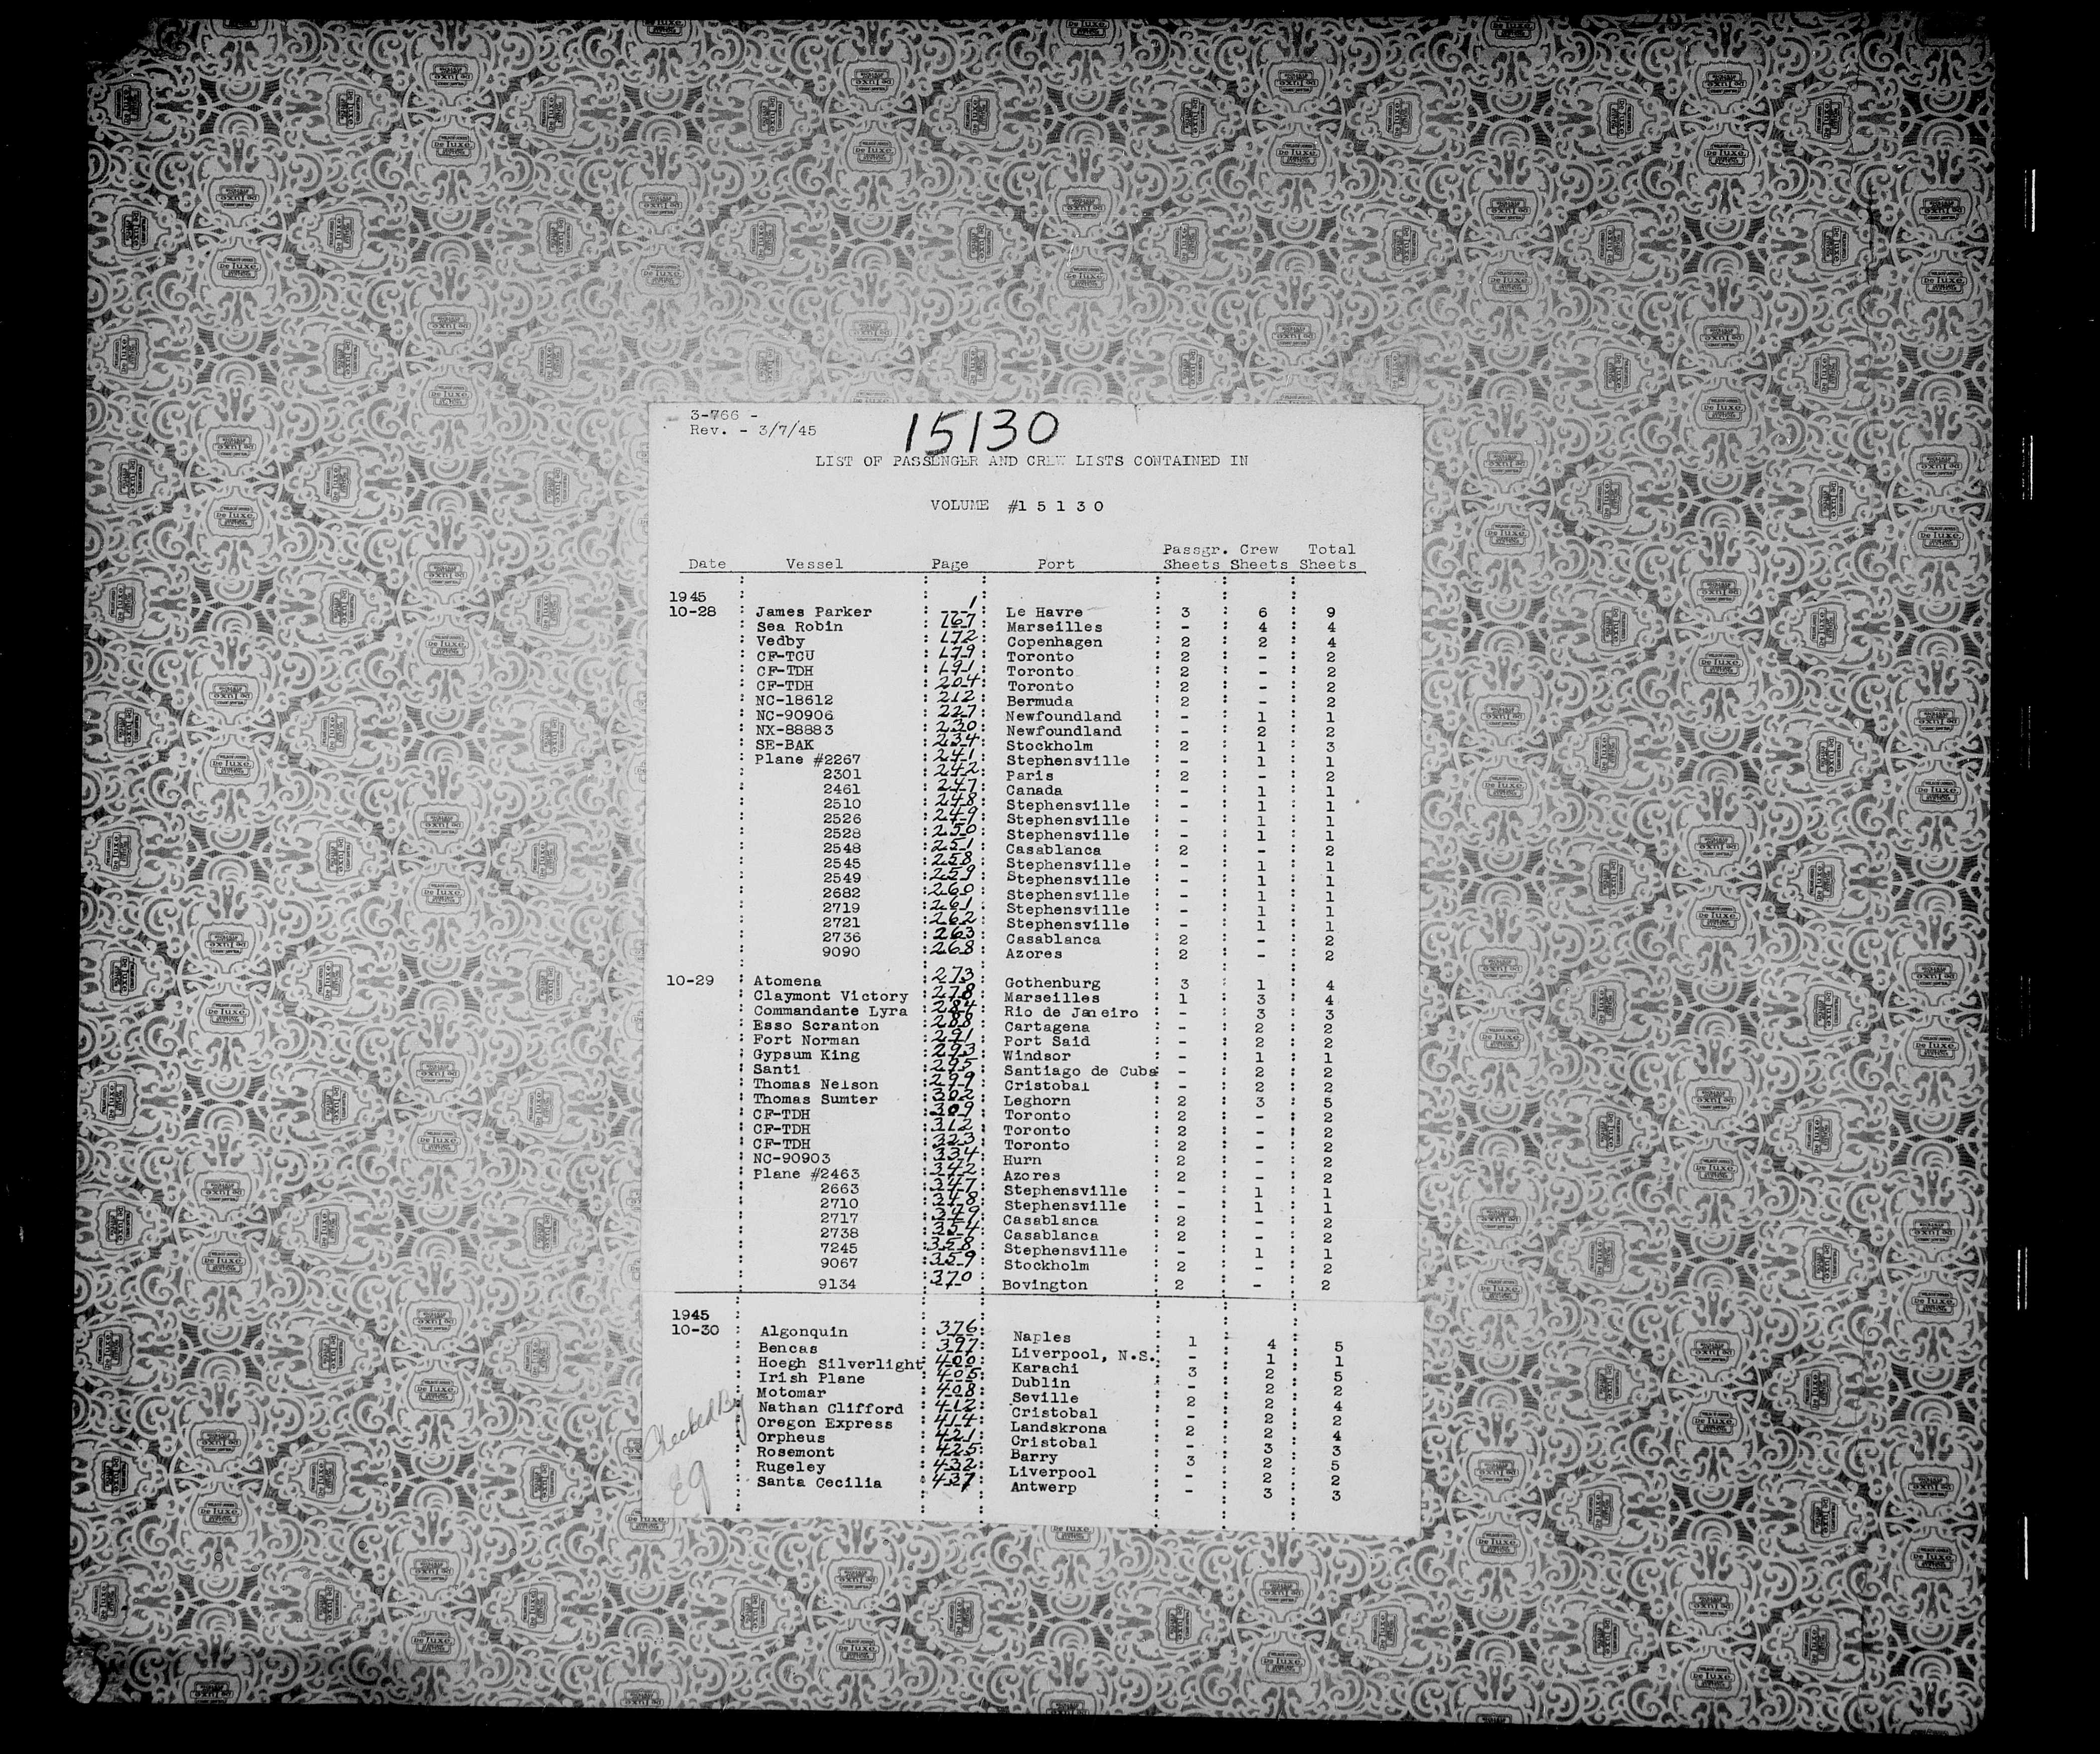 3-766 -
Rev. - 3/7/45
15130
LIST OF PASSENGER AND CREW LISTS CONTAINED IN
VOLUME #1 5 1 3 0
Passgr. Crew Total
Date Vessel Page Port Sheets Sheets Sheets
1945
10-28 : James Parker : 1 : Le Havre : 3 : 6 : 9
: Sea Robin : 167 : Marseilles : - : 4 : 4
: Vedby : 172 : Copenhagen : 2 : 2 : 4
: CF-TCU : 179 : Toronto : 2 : - : 2
: CF-TDH : 191 : Toronto : 2 : - : 2
: CF-TDH : 204 : Toronto : 2 : - : 2
: NC-18612 : 212 : Bermuda : 2 : - : 2
: NC-90906 : 227 : Newfoundland : - : 1 : 1
: NX-88883 : 230 : Newfoundland : - : 2 : 2
: SE-BAK : 234 : Stockholm : 2 : 1 : 3
: Plane #2267 : 241 : Stephensville : - : 1 : 1
: 2301 : 242 : Paris : 2 : - : 2
: 2461 : 247 : Canada : - : 1 : 1
: 2510 : 248 : Stephensville : - : 1 : 1
: 2526 : 249 : Stephensville : - : 1 : 1
: 2528 : 250 : Stephensville : - : 1 : 1
: 2548 : 251 : Casablanca : 2 : - : 2
: 2545 : 258 : Stephensville : - : 1 : 1
: 2549 : 259 : Stephensville : - : 1 : 1
: 2682 : 260 : Stephensville : - : 1 : 1
: 2719 : 261 : Stephensville : - : 1 : 1
: 2721 : 262 : Stephensville : - : 1 : 1
: 2736 : 263 : Casablanca : 2 : - : 2
: 9090 : 268 : Azores : 2 : - : 2
10-29 : Atomena : 273 : Gothenburg : 3 : 1 : 4
: Claymont Victory : 278 : Marseilles : 1 : 3 : 4
: Commandante Lyra : 284 : Rio de Janeiro : - : 3 : 3
: Esso Scranton : 288 : Cartagena : - : 2 : 2
: Fort Norman : 291 : Port Said : - : 2 : 2
: Gypsum King : 293 : Windsor : - : 1 : 1
: Santi : 295 : Santiago de Cuba : - : 2 : 2
: Thomas Nelson : 299 : Cristobal : - : 2 : 2
: Thomas Sumter : 302 : Leghorn : 2 : 3 : 5
: CF-TDH : 309 : Toronto : 2 : - : 2
: CF-TDH : 312 : Toronto : 2 : - : 2
: CF-TDH : 323 : Toronto : 2 : - : 2
: NC-90903 : 334 : Hurn : 2 : - : 2
: Plane #2463 : 342 : Azores : 2 : - : 2
: 2663 : 347 : Stephensville : - : 1 : 1
: 2710 : 348 : Stephensville : - : 1 : 1
: 2717 : 349 : Casablanca : 2 : - : 2
: 2738 : 354 : Casablanca : 2 : - : 2
: 7245 : 358 : Stephensville : - : 1 : 1
: 9067 : 359 : Stockholm : 2 : - : 2
: 9134 : 370 : Bovington : 2 : - : 2
1945
10-30 : Algonquin : 376 : Naples : 1 : 4 : 5
: Bencas : 397 : Liverpool, N.S. : - : 1 : 1
: Hoegh Silverlight : 400 : Karachi : 3 : 2 : 5
: Irish Plane : 405 : Dublin : - : 2 : 2
: Motomar : 408 : Seville : 2 : 2 : 4
: Nathan Clifford : 412 : Cristobal : - : 2 : 2
: Oregon Express : 414 : Landskrona : 2 : 2 : 4
: Orpheus : 421 : Cristobal : - : 3 : 3
: Rosemont : 425 : Barry : 3 : 2 : 5
: Rugeley : 432 : Liverpool : - : 2 : 2
: Santa Cecilia : 437 : Antwerp : - : 3 : 3
Checked By
Eg
De luxe